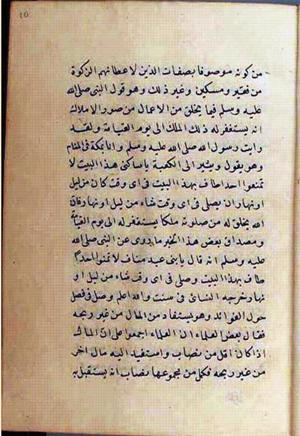 من كونه موصوفا بصفات الذين لاعطائهم الزكوة
من فقير ومسكين وغير ذلك وهو قول النبى صلى الله
عليه وسلم فيما يخلق من الاعمال من صور الاملاك
انه يستغفر له ذلك الملك الى يوم القيامة ولقد
رايت رسول الله صلى الله عليه وسلم وانا بمكة فى المنام
وهو يقول ويشير الى الكعبة ياساكنى هذا البيت لا
تمنعوا احدا طاف بهذا البيت فى اى وقت كان من ليل
او نهار ان يصلى فى اى وقت شاء من ليل او نهار فان
الله يخلق له من صلوته ملكا يستغفر له الى يوم القيمة
ومصداق بعض هذا الخبر ما روى عن النبى صلى الله
عليه وسلم انه قال يا بنى عبد مناف لا تمنعوا احدا
طاف بهذا البيت وصلى فى اى وقت شاء من ليل او
نهار خرجه النسائى فى سننه والله اعلم وصل فى فصل
حول الفوائد وهو يستفاد من المال من غير ربحه
فقال بعض العلماء ان العلماء اجمعوا على ان المال
اذا كان اقل من نصاب واستفيد اليه مال اخر
من غير ربحه فكمل من مجموعهما نصاب انه يستقبل به